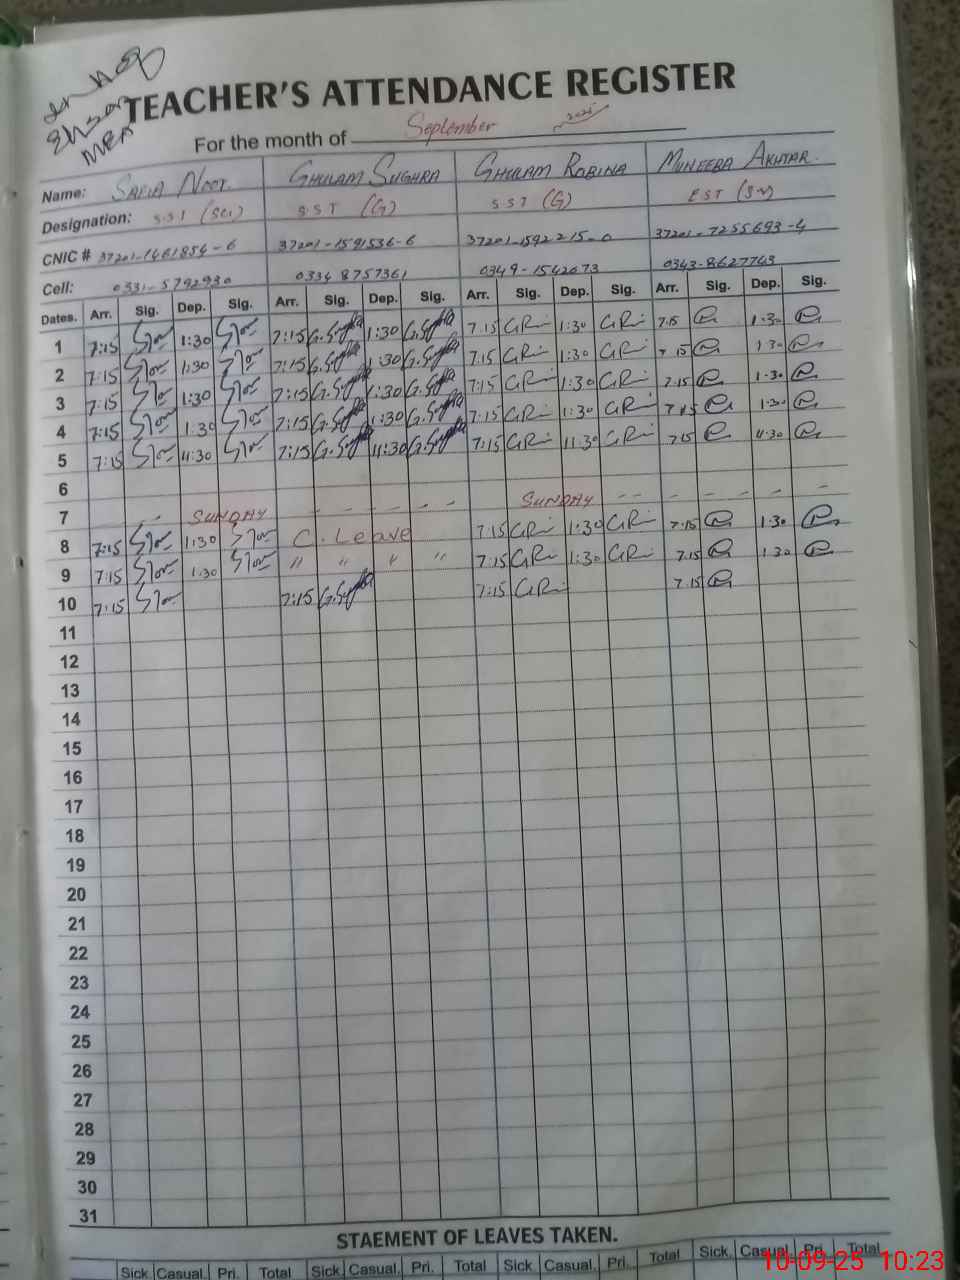 TEACHER'S ATTENDANCE REGISTER
For the month of September 2025
Name: SAFIA NOOT. GHULAM SUGHRA GHULAM ROBINA MUNEEBA AKHTAR.
Designation: S.S.T (Sci) S.S T (G) S S T (G) EST (Sc)
CNIC # 37201-1461854-6 37201-1591536-6 37201-1592215-0 37201-7255693-4
Cell: 0331-5792930 0334 8757361 0349-1542073 0343-8627743
Dates. Arr. Sig. Dep. Sig. Arr. Sig. Dep. Sig. Arr. Sig. Dep. Sig. Arr. Sig. Dep. Sig.
1 7:15 1:30 7:15 1:30 7.15 1:30 7.15 1:30
2 7:15 1:30 7:15 1:30 7.15 1:30 7.15 1:30
3 7:15 1:30 7:15 1:30 7:15 1:30 7.15 1:30
4 7:15 1:30 7:15 1:30 7:15 1:30 7:15 1:30
5 7:15 11:30 7:15 11:30 7:15 11:30 7:15 11:30
6
7 SUNDAY SUNDAY
8 7:15 1:30 C. Leave 7:15 1:30 7:15 1:30
9 7:15 1:30 " " " " 7:15 1:30 7.15 1:30
10 7:15 7:15 7:15 7.15
11
12
13
14
15
16
17
18
19
20
21
22
23
24
25
26
27
28
29
30
31
STAEMENT OF LEAVES TAKEN.
Sick Casual. Pri. Total Sick Casual. Pri. Total Sick Casual. Pri. Total Sick. Casual Pri. Total
10-09-25 10:23